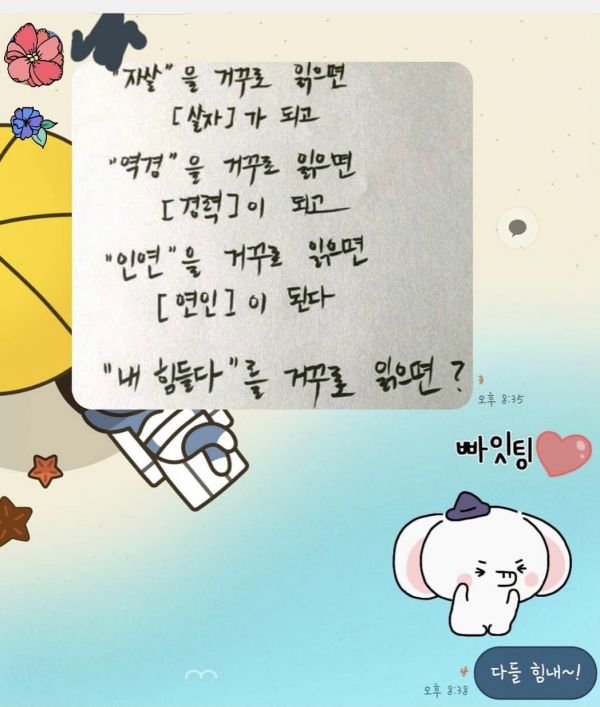 "자살"을 거꾸로 읽으면
[살자]가 되고
"역경"을 거꾸로 읽으면
[경력]이 되고
"인연"을 거꾸로 읽으면
[연인]이 된다
"내 힘들다"를 거꾸로 읽으면?
3
오후 8:35
빠잇팅
다들 힘내~!
4
오후 8:38